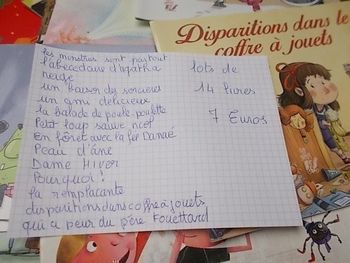 Disparitions dans le
coffre à jouets
les monstres sont partout
l'abécédaire d'Agatha
neige
un baiser de sorcières
un ami délicieux
la balade de poule poulette
Petit loup sauve noel
En forêt avec la fée Danaé
Peau d'âne
Dame Hiver
Pourquoi!
la remplaçante
disparitions dans coffre à jouets
qui a peur du père Fouettard
lots de
14 livres
7 Euros